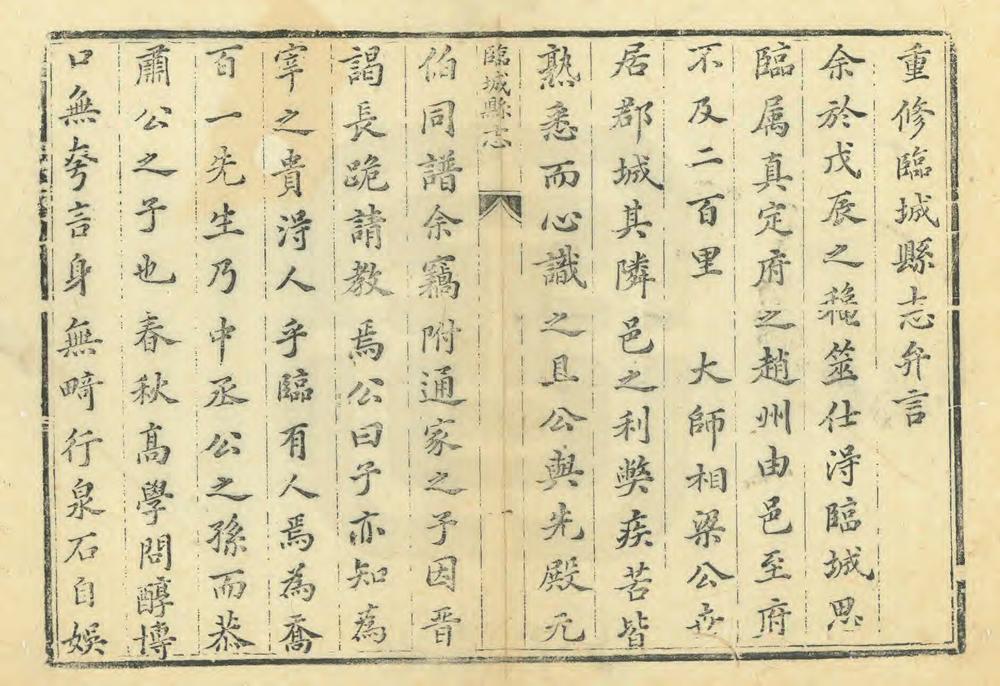 重修臨城縣志弁言
余於戊辰之穐筮仕淂臨城思
臨属真定府之趙州由邑至府
不及二百里　大師相梁公世
居郡城其隣邑之利獘疾苦皆
熟悉而心識之且公與先殿元
臨城縣志
伯同譜余竊附通家之子因晋
謁長跪請教焉公曰子亦知為
宰之貴淂人乎臨有人焉為喬
百一先生乃中丞公之孫而恭
肅公之子也春秋高學問醇博
口無夸言身無畸行泉石自娯